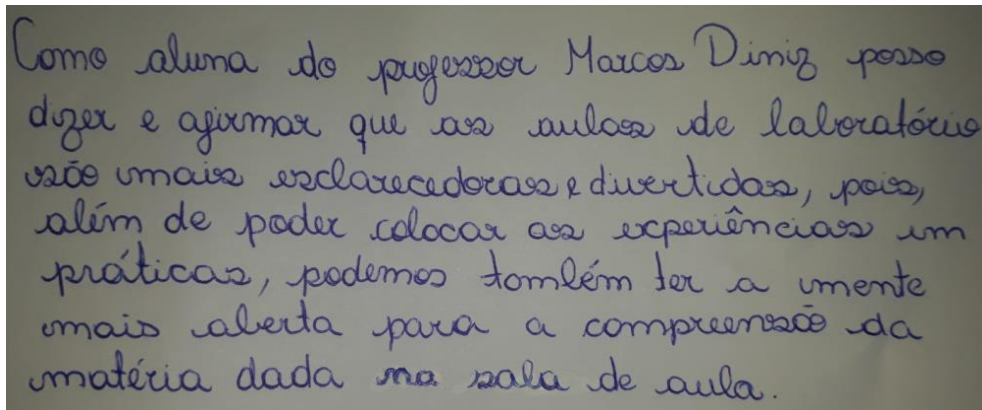 Como aluna do professor Marcos Diniz posso
dizer e afirmar que as aulas de laboratório
são mais esclarecedoras e divertidas, pois,
além de poder colocar as experiências em
práticas, podemos também ter a mente
mais aberta para a compreensão da
matéria dada na sala de aula.